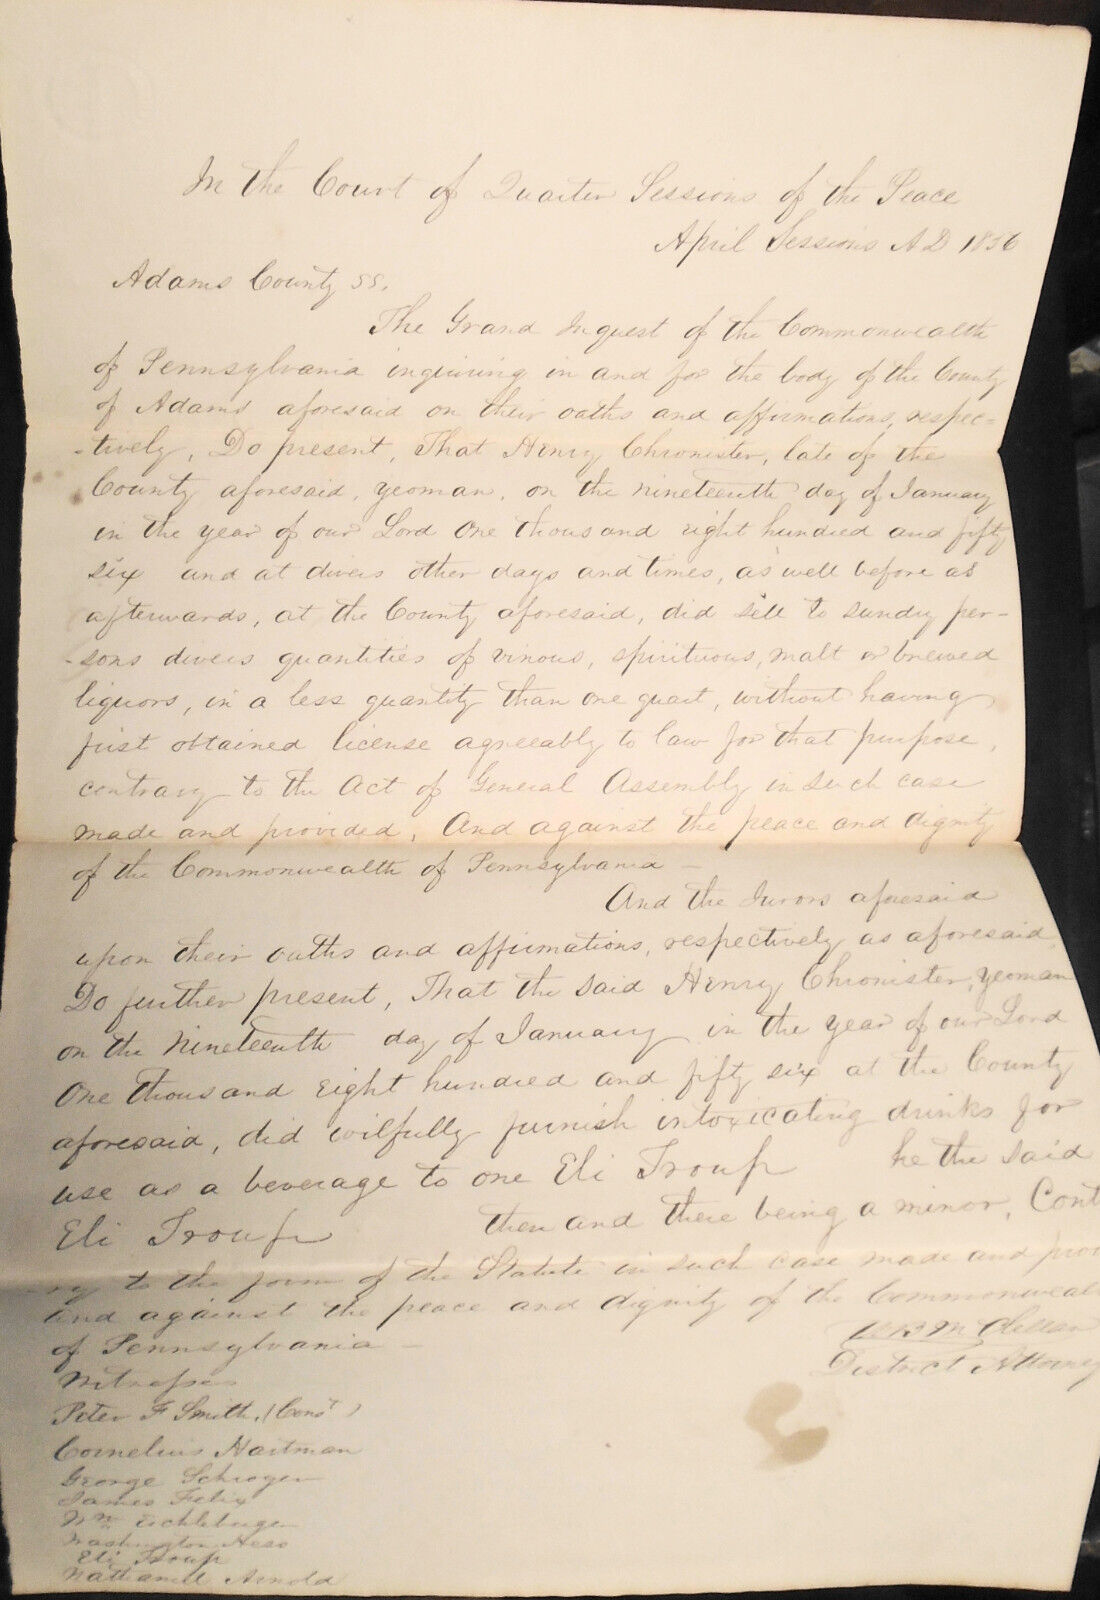 In the Court of Quarter Sessions of the Peace
April Sessions A D 1856
Adams County SS.
The Grand Inquest of the Commonwealth
of Pennsylvania inquiring in and for the body of the County
of Adams aforesaid on their oaths and affirmations, respec-
-tively, Do present, That Henry Chronister, late of the
County aforesaid, yeoman, on the nineteenth day of January
in the year of our Lord One thousand eight hundred and fifty
six and at divers other days and times, as well before as
afterwards, at the County aforesaid, did sell to sundry per-
-sons divers quantities of vinous, spirituous, malt or brewed
liquors, in a less quantity than one quart, without having
first obtained license agreeably to law for that purpose,
contrary to the Act of General Assembly in such case
made and provided, And against the peace and dignity
of the Commonwealth of Pennsylvania –
And the Jurors aforesaid
upon their oaths and affirmations, respectively as aforesaid,
Do further present, That the said Henry Chronister, yeoman
on the Nineteenth day of January in the year of our Lord
One thousand Eight hundred and fifty six at the County
aforesaid, did wilfully furnish intoxicating drinks for
use as a beverage to one Eli Troup he the said
Eli Troup then and there being a minor, Cont
ry to the form of the Statute in such case made and prov
and against the peace and dignity of the Commonwealt
of Pennsylvania –
W B McClellan
District Attorney
Witnesses
Peter F Smith, (Const)
Cornelius Hartman
George Schroger
James Felix
Wm Eichleberger
Washington Hess
Eli Troup
Nathaniel Arnold